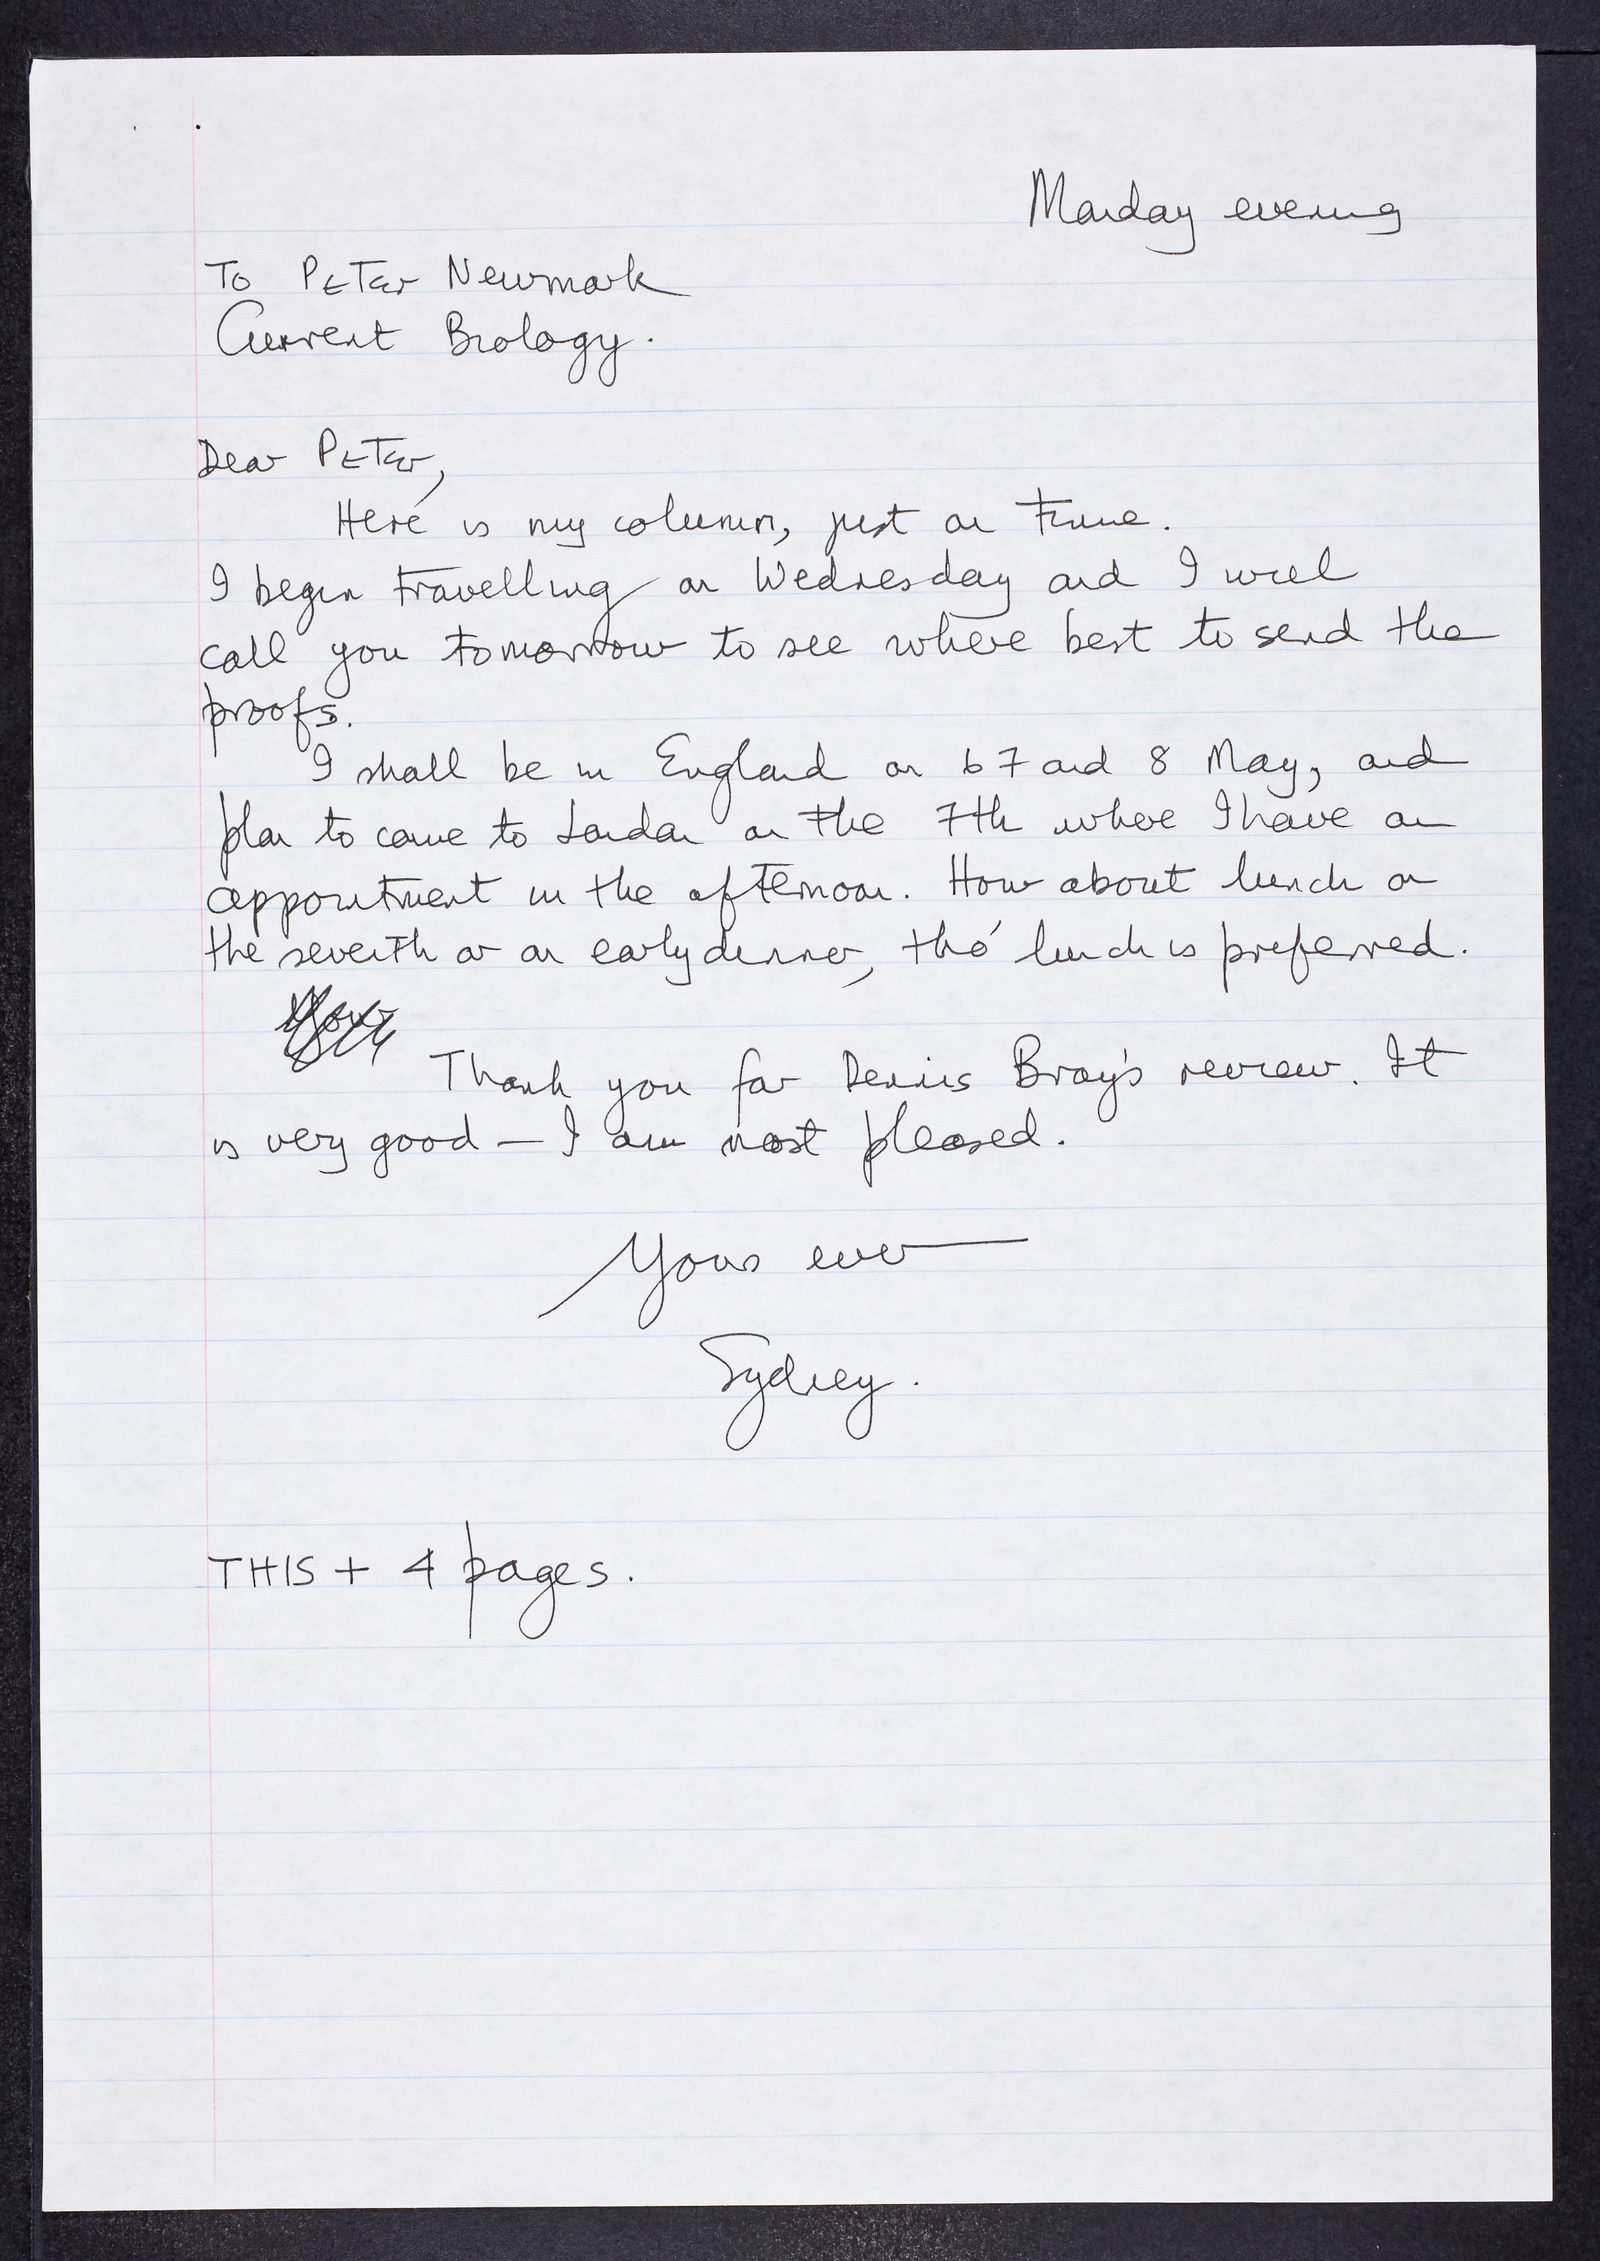 Monday evening
To Peter Newmark
Current Biology.
Dear Peter,
Here is my column, just on time.
I begin travelling on Wednesday and I will
call you tomorrow to see where best to send the
proofs.
I shall be in England on 6 7 and 8 May, and
plan to come to London on the 7th where I have an
appointment in the afternoon. How about lunch on
the seventh or an early dinner, tho' lunch is preferred.
Thank you for Dennis Bray's review. It
is very good – I am most pleased.
Yours ever
Sydney.
THIS + 4 pages.